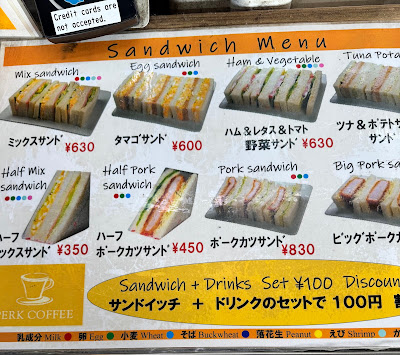 Credit cards are
not accepted.
Sandwich Menu
Mix sandwich
Egg sandwich
Ham & Vegetable
Tuna Pota
ミックスサンド
¥630
タマゴサンド
¥600
ハム&レタス&トマト
野菜サンド ¥630
ツナ&ポテトサ
サンド
Half Mix
sandwich
Half Pork
sandwich
Pork sandwich
Big Pork san
ハーフ
ックスサンド ¥350
ハーフ
ポークカツサンド ¥450
ポークカツサンド
¥830
ビッグポークカ
PERK COFFEE
Sandwich + Drinks Set ¥100 Discoun
サンドイッチ + ドリンクのセットで 100円
乳成分 Milk 卵 Egg 小麦 Wheat そば Buckwheat 落花生 Peanut えび Shrimp か